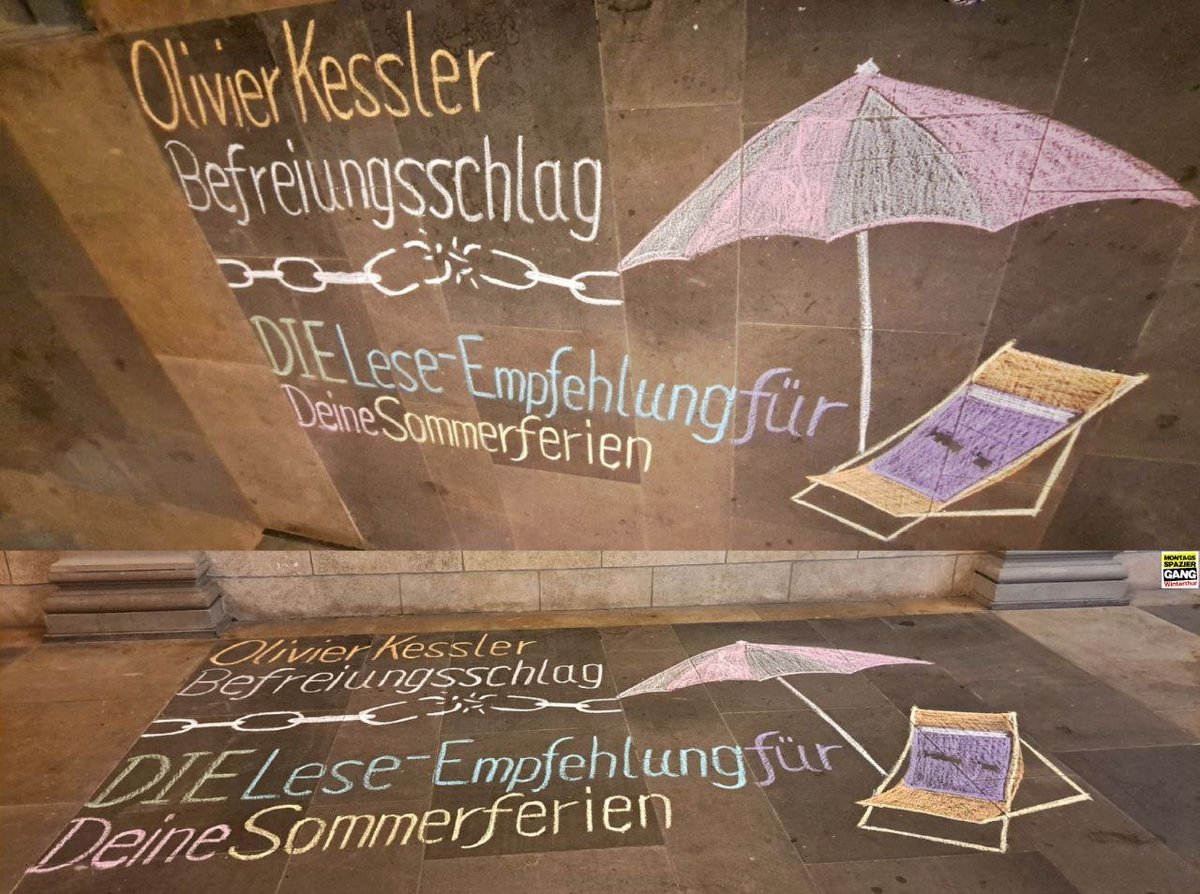 Olivier Kessler
Befreiungsschlag
DIE Lese-Empfehlung für
Deine Sommerferien
MONTAGS
SPAZIER
GANG
Winterthur
Olivier Kessler
Befreiungsschlag
DIE Lese-Empfehlung für
Deine Sommerferien